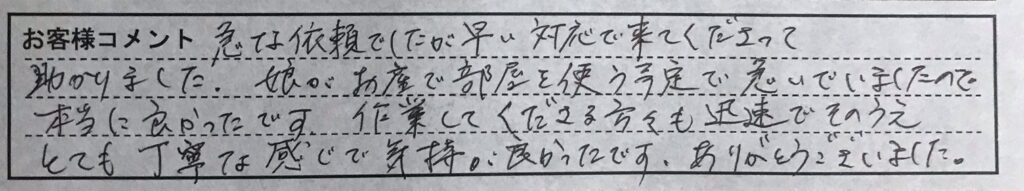 お客様コメント 急な依頼でしたが早い対応で来てくださって
助かりました。娘がお産で部屋を使う予定で急いでいましたので
本当に良かったです。作業してくださる方々も迅速でそのうえ
とても丁寧な感じで気持が良かったです。ありがとうございました。